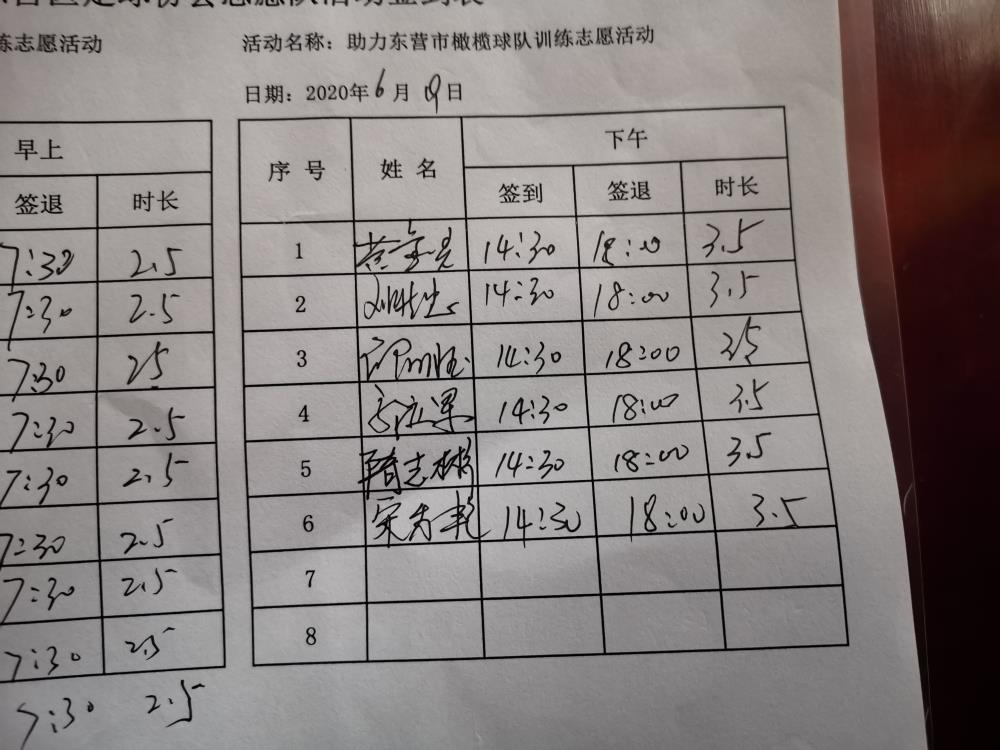 足球协会志愿队活动签到表
练志愿活动
活动名称：助力东营市橄榄球队训练志愿活动
日期：2020年6月 日
早上
签退 时长
7:30 2.5
7:30 2.5
7:30 25
7:30 2.5
7:30 2.5
7:30 2.5
7:30 2.5
7:30 2.5
7:30 2.5
序号 姓名 下午
签到 签退 时长
1 14:30 18:00 3.5
2 14:30 18:00 3.5
3 14:30 18:00 35
4 14:30 18:00 3.5
5 隋志彬 14:30 18:00 3.5
6 14:30 18:00 3.5
7
8